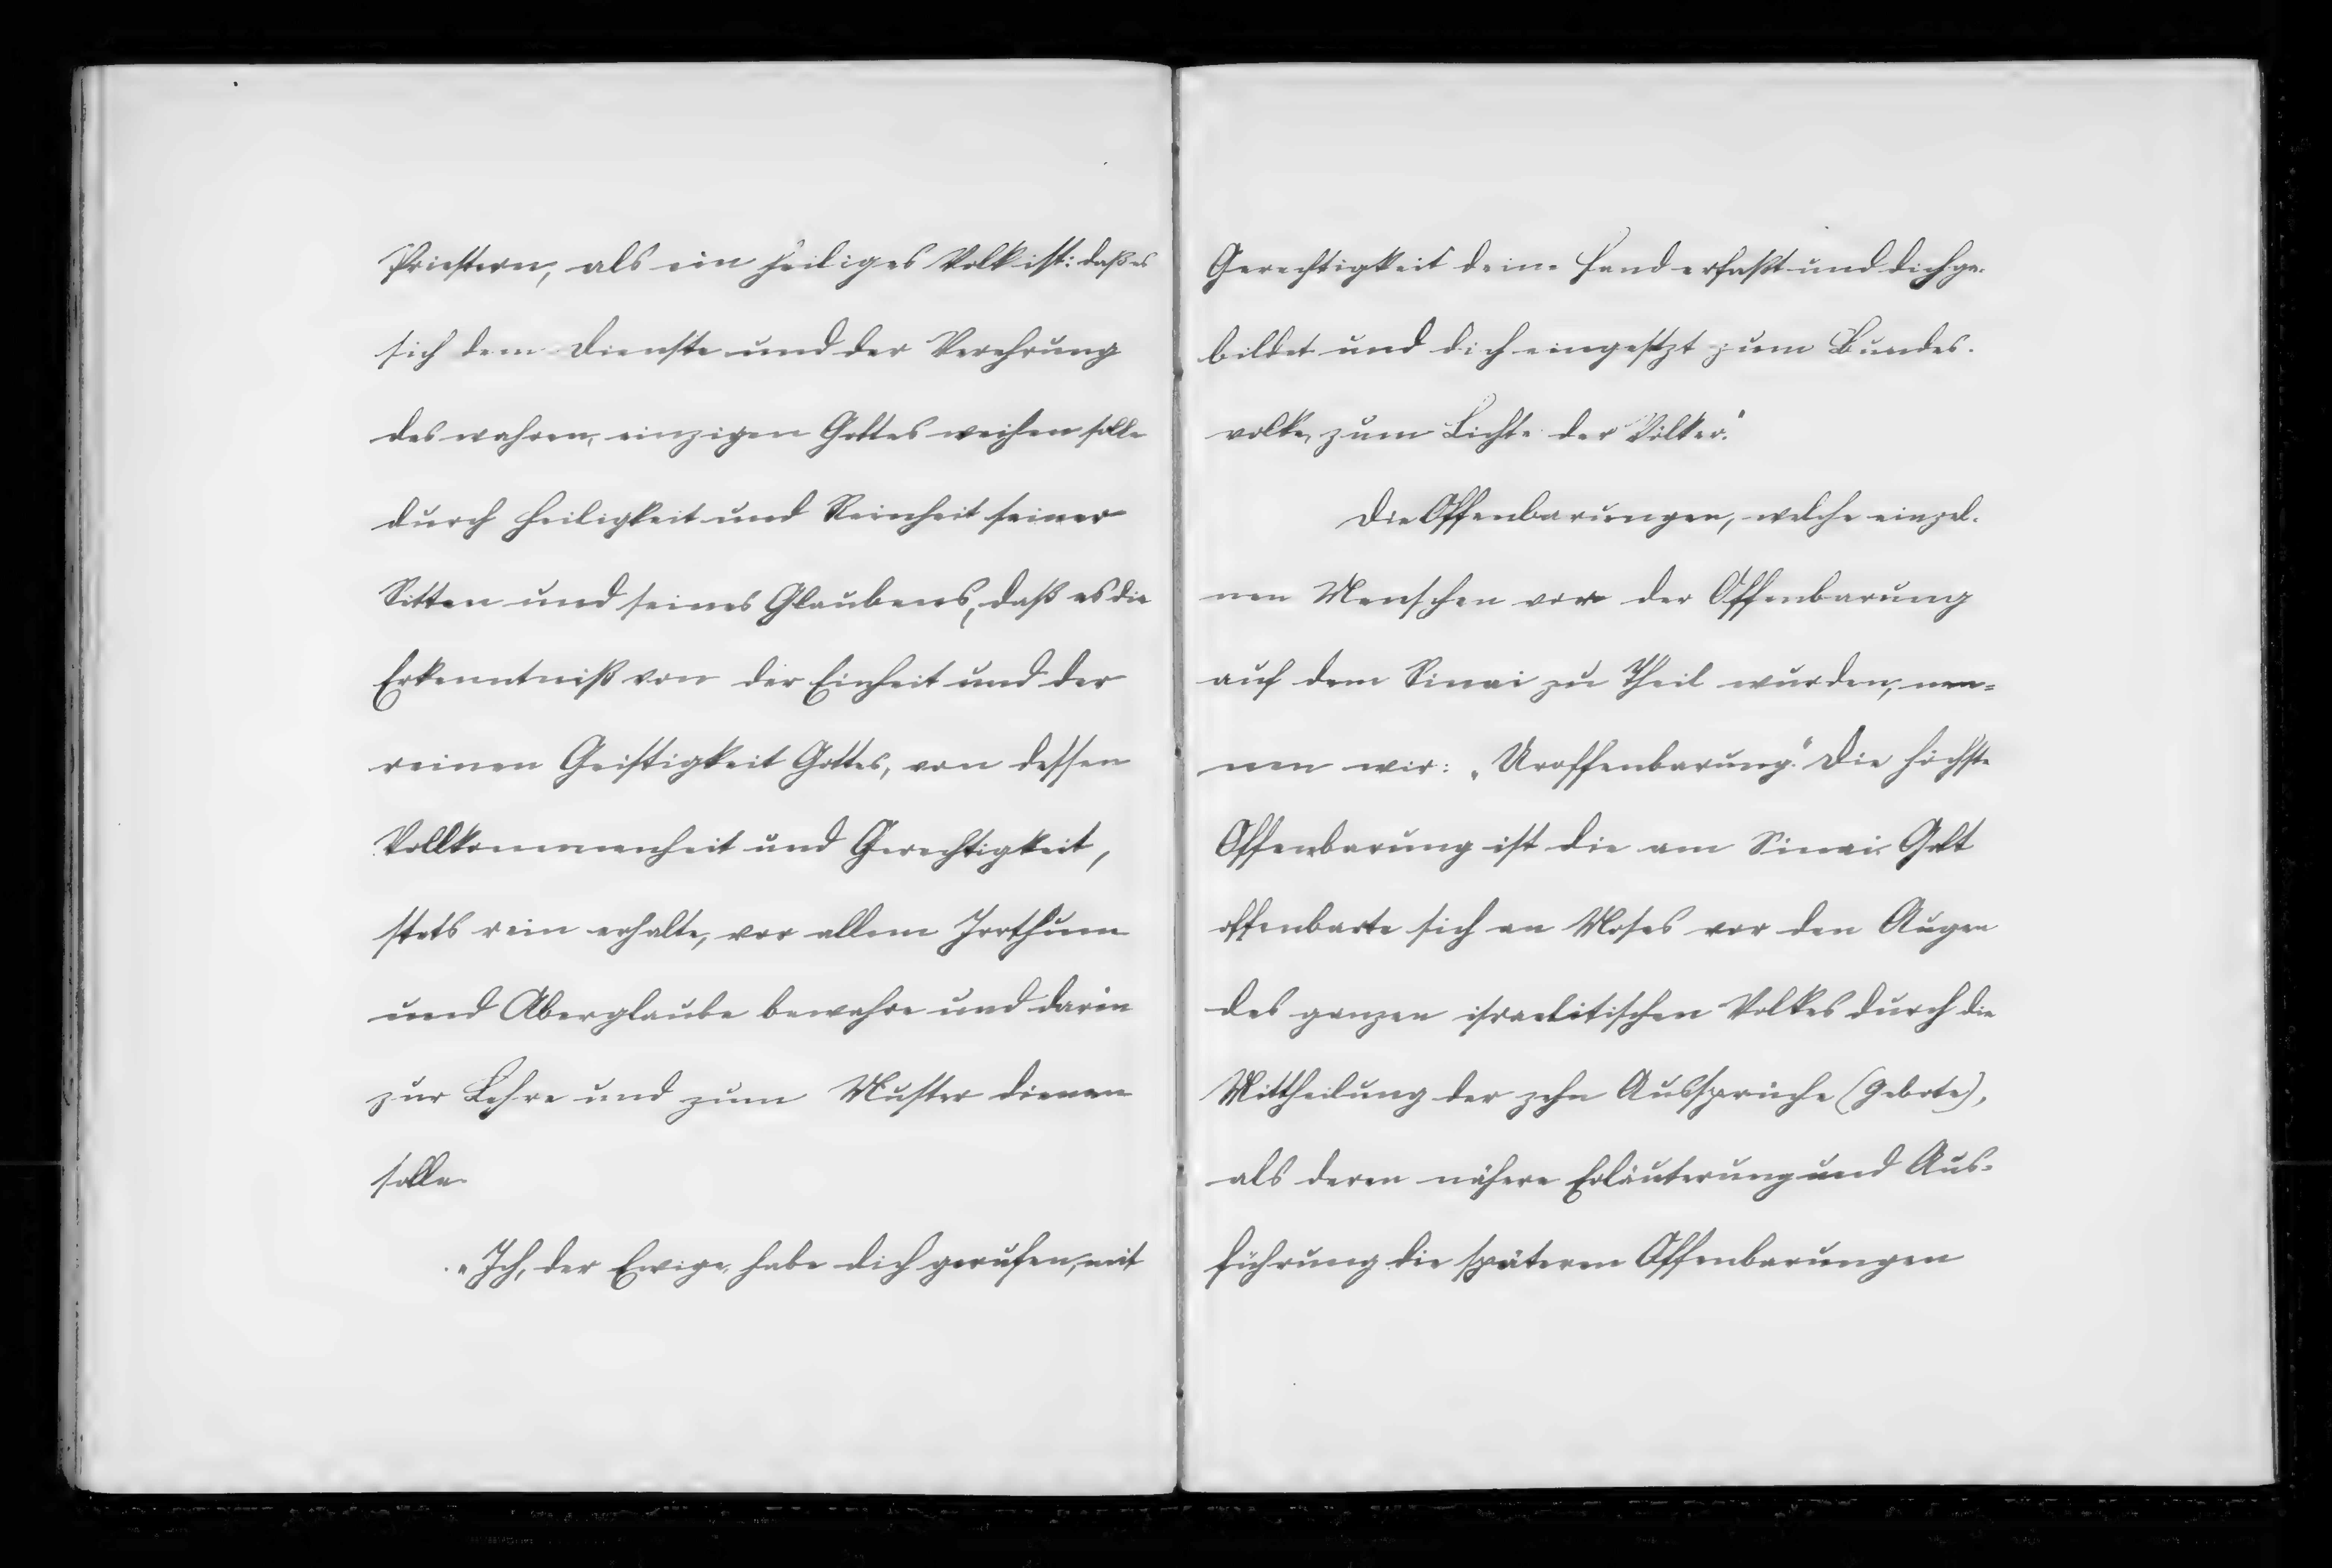 Priestern, als ein heiliges Volk ist: daß es
sich dem Dienste und der Verehrung
des wahren, einzigen Gottes weihen solle
durch Heiligkeit und Reinheit seiner
Sitten und seines Glaubens, daß es die
Erkenntniß von der Einheit und der
reinen Geistigkeit Gottes, von dessen
Vollkommenheit und Gerechtigkeit,
stets rein erhalte, vor allem Irrthum
und Aberglaube bewahre und darin
zur Lehre und zum Muster dienen
solle.
„Ich, der Ewige, habe dich gerufen, mit
Gerechtigkeit deine Hand erfaßt und dich ge-
bildet und dich eingesetzt zum Bundes-
volke, zum Lichte der Völker."
Die Offenbarungen, welche einzel-
nen Menschen vor der Offenbarung
auf dem Sinai zu Theil wurden, nen=
nen wir: „Uroffenbarung." Die höchste
Offenbarung ist die am Sinai. Gott
offenbarte sich an Moses vor den Augen
des ganzen israelitischen Volkes durch die
Mittheilung der zehn Aussprüche (Gebote),
als deren nähere Erläuterung und Aus-
führung die späteren Offenbarungen